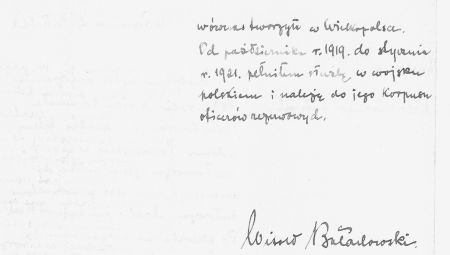 wówczas tworzyły w Wielkopolsce.
Od października r. 1919. do stycznia
r. 1921. pełniłem służbę w wojsku
polskiem i należę do jego Korpusu
oficerów rezerwowych.
Witold